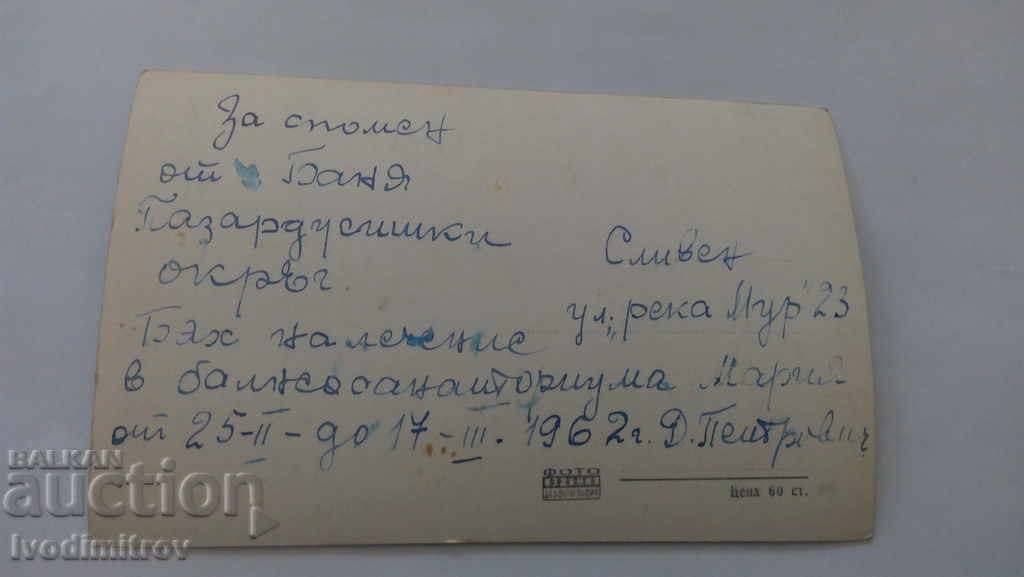 За спомен
от Баня
Пазарджишки
окръг.
Бях на лечение
в балнеосанаториума
от 25-II- до 17-III. 1962г.
Сливен
ул. "река Мур" 23
Мария
Д. Петрович
ФОТО
Цена 60 ст.
BALKAN
auction
Ivodimitrov